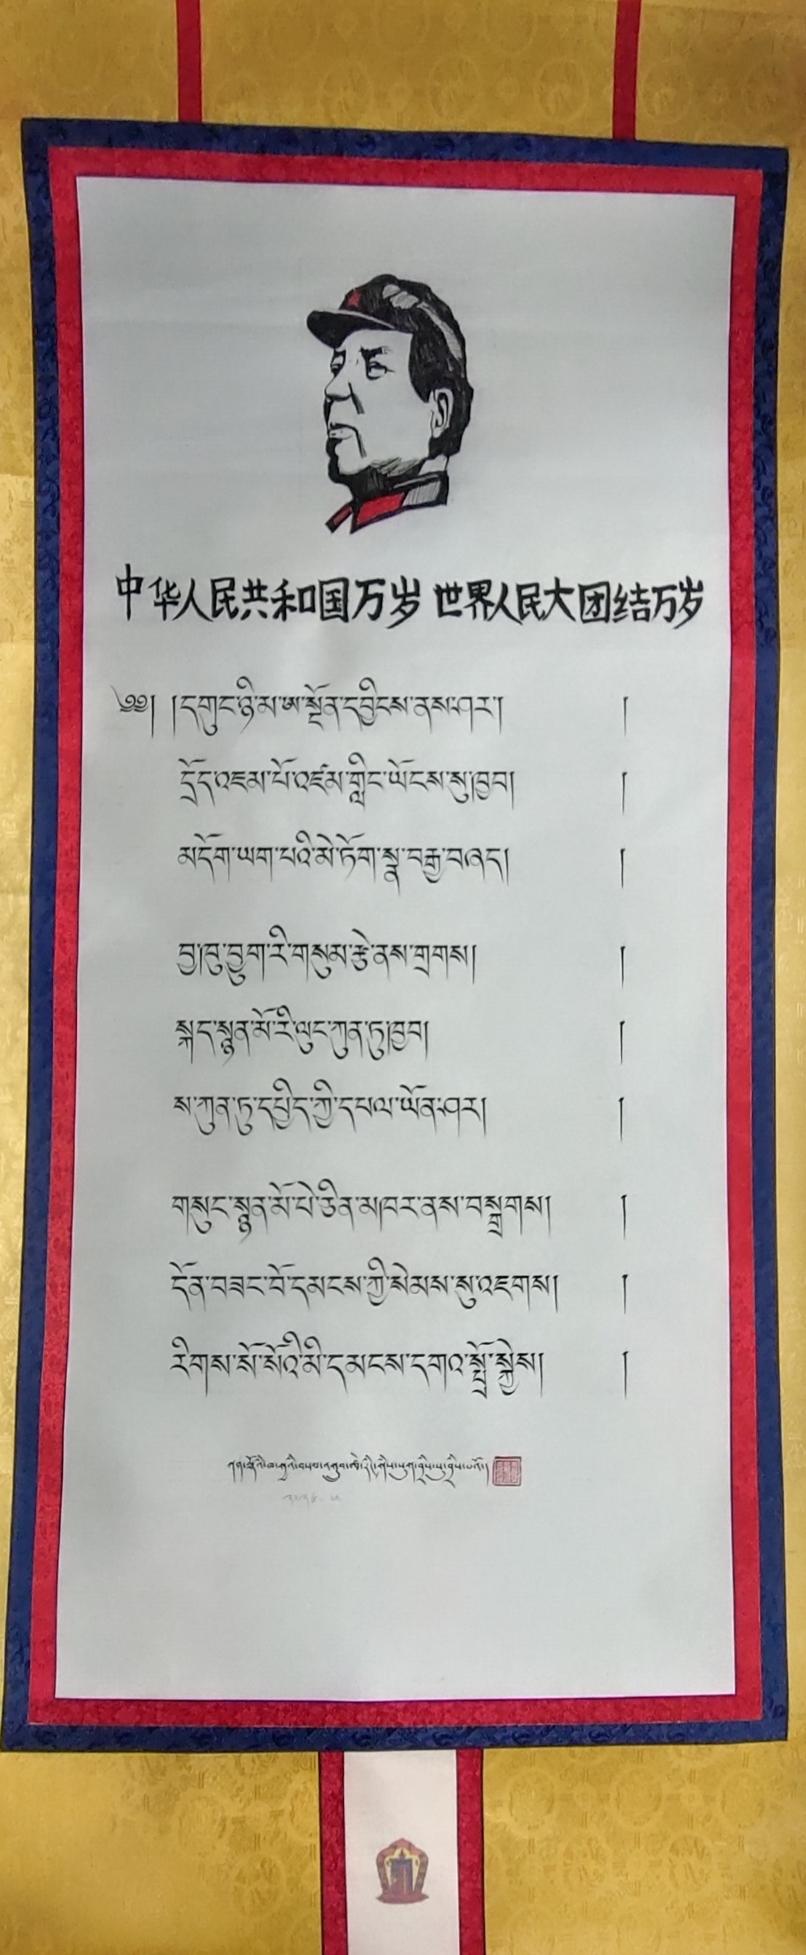 中华人民共和国万岁 世界人民大团结万岁
༄༅། །དགུང་ཉི་མ་ཨ་སྔོན་དབྱིངས་ནས་ཤར། །
དྲོད་འཇམ་པོ་འཛམ་གླིང་ཡོངས་སུ་ཁྱབ། །
མདོག་ཡག་པའི་མེ་ཏོག་སྣ་བརྒྱ་བཞད། །
བྱ་ཁུ་བྱུག་རི་གསུམ་རྩེ་ནས་གྲགས། །
སྐད་སྙན་མོ་རི་ལུང་ཀུན་ཏུ་ཁྱབ། །
ས་ཀུན་ཏུ་དཔྱིད་ཀྱི་དཔལ་ཡོན་ཤར། །
གསུང་སྙན་མོ་པེ་ཅིན་མཁར་ནས་བསྒྲགས། །
དོན་བཟང་པོ་དམངས་ཀྱི་སེམས་སུ་འཇགས། །
རིགས་སོ་སོའི་མི་དམངས་དགའ་སྤྲོ་སྐྱེས། །